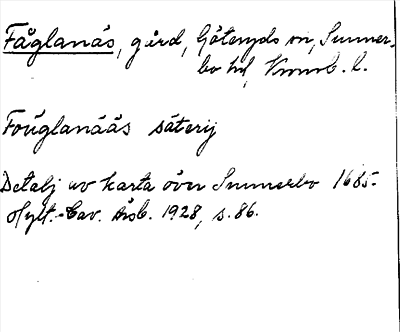 Fåglanäs, gård, Göteryds sn, Sunner-
bo hd, Kronob. l.
Foüglanääs säterij
Detalj av karta över Sunnerbo 1685.
Hylt.-Cav. Årsb. 1928, s. 86.